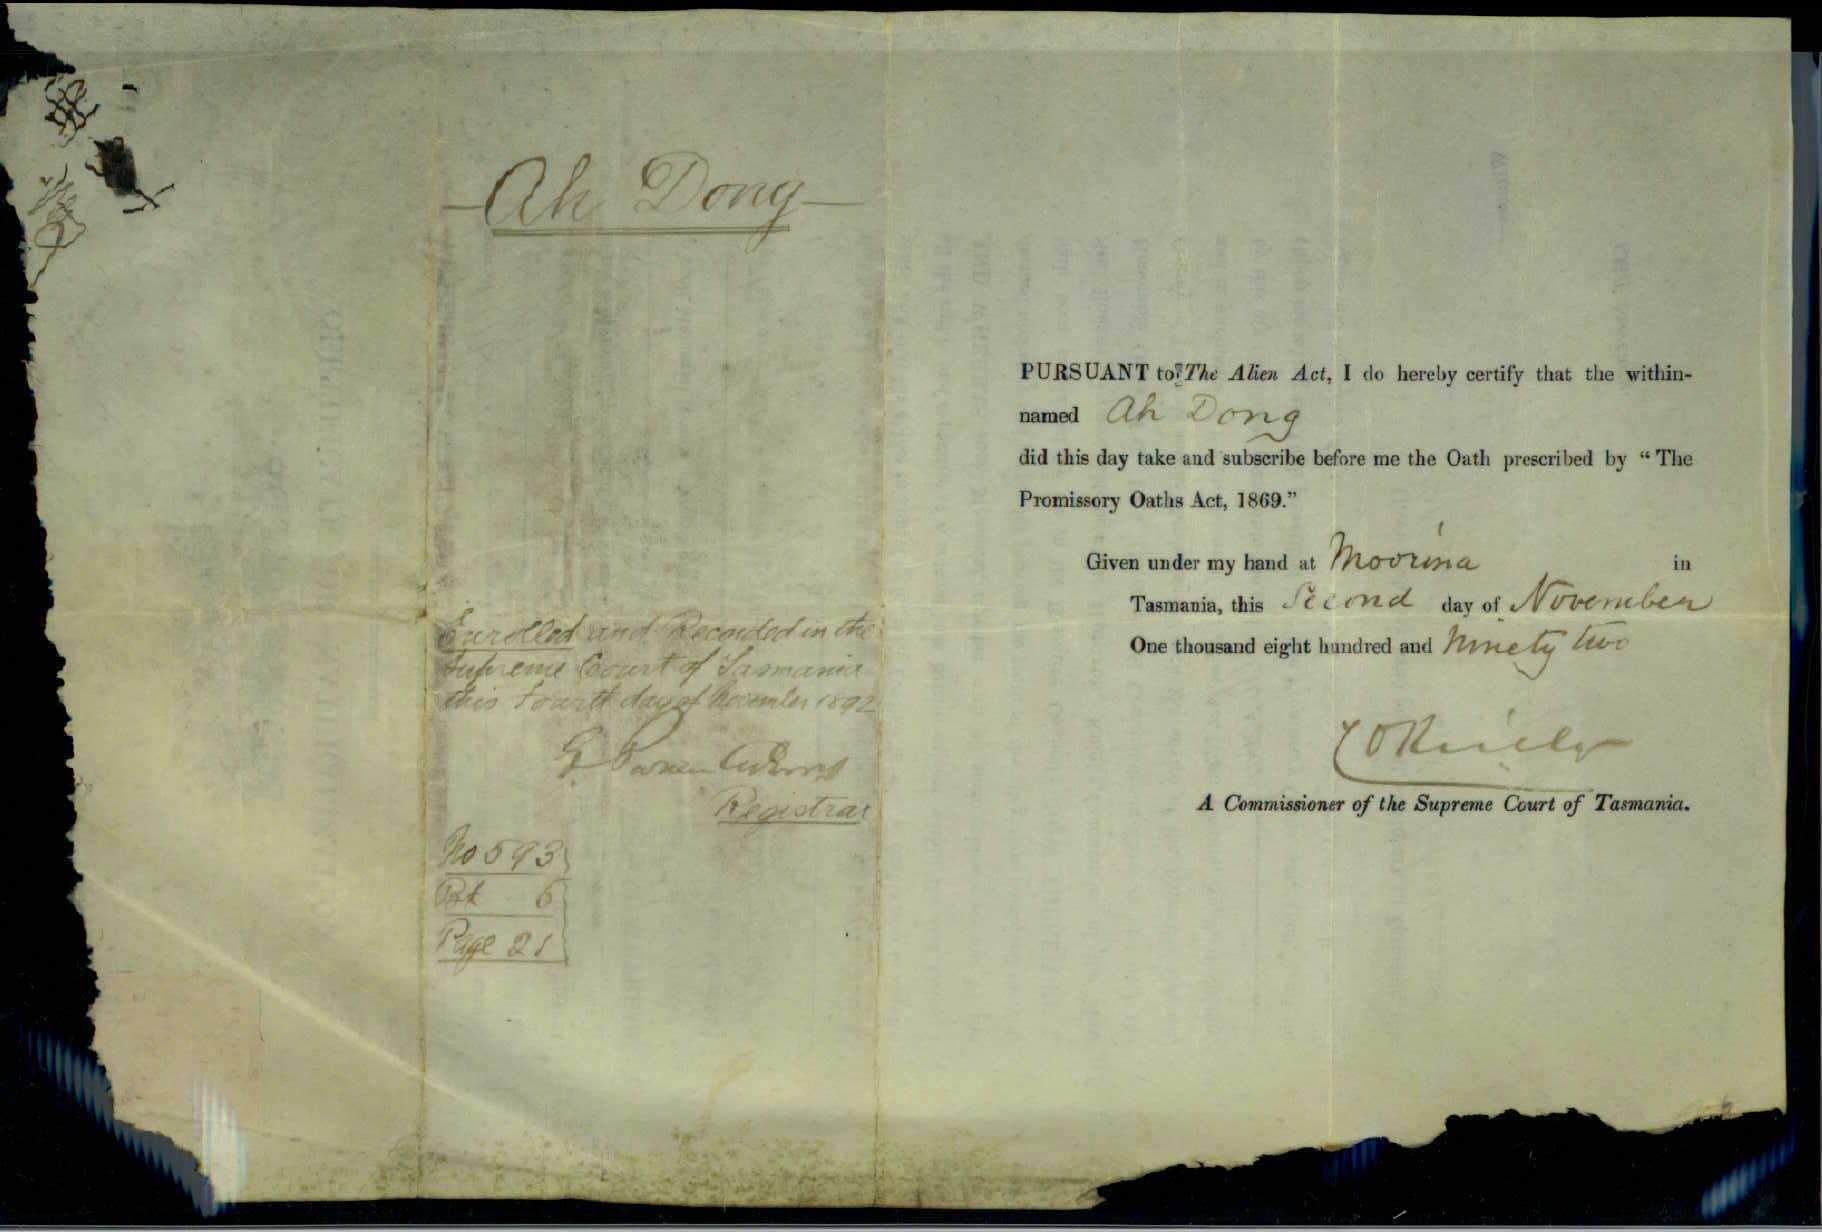 Ah Dong
Enrolled and Recorded in the
Supreme Court of Tasmania
this Fourth day of November 1892
Registrar
No 593
Bk 6
Page 21
PURSUANT to The Alien Act, I do hereby certify that the within-
named Ah Dong
did this day take and subscribe before me the Oath prescribed by “The
Promissory Oaths Act, 1869.”
Given under my hand at Moorina in
Tasmania, this Second day of November
One thousand eight hundred and Ninety two
O'Reilly
A Commissioner of the Supreme Court of Tasmania.